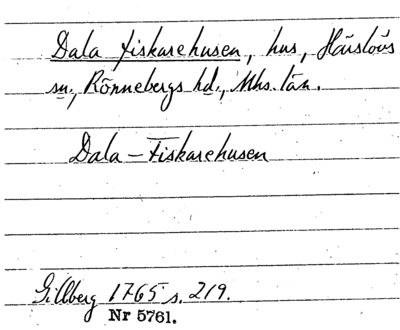 Dala fiskarehusen, hus, Häuslöüs
sn., Rönnebergs hd., Mhs. län.
Dala-Fiskarehusen
Gillberg 1765 s. 219.
Nr 5761.